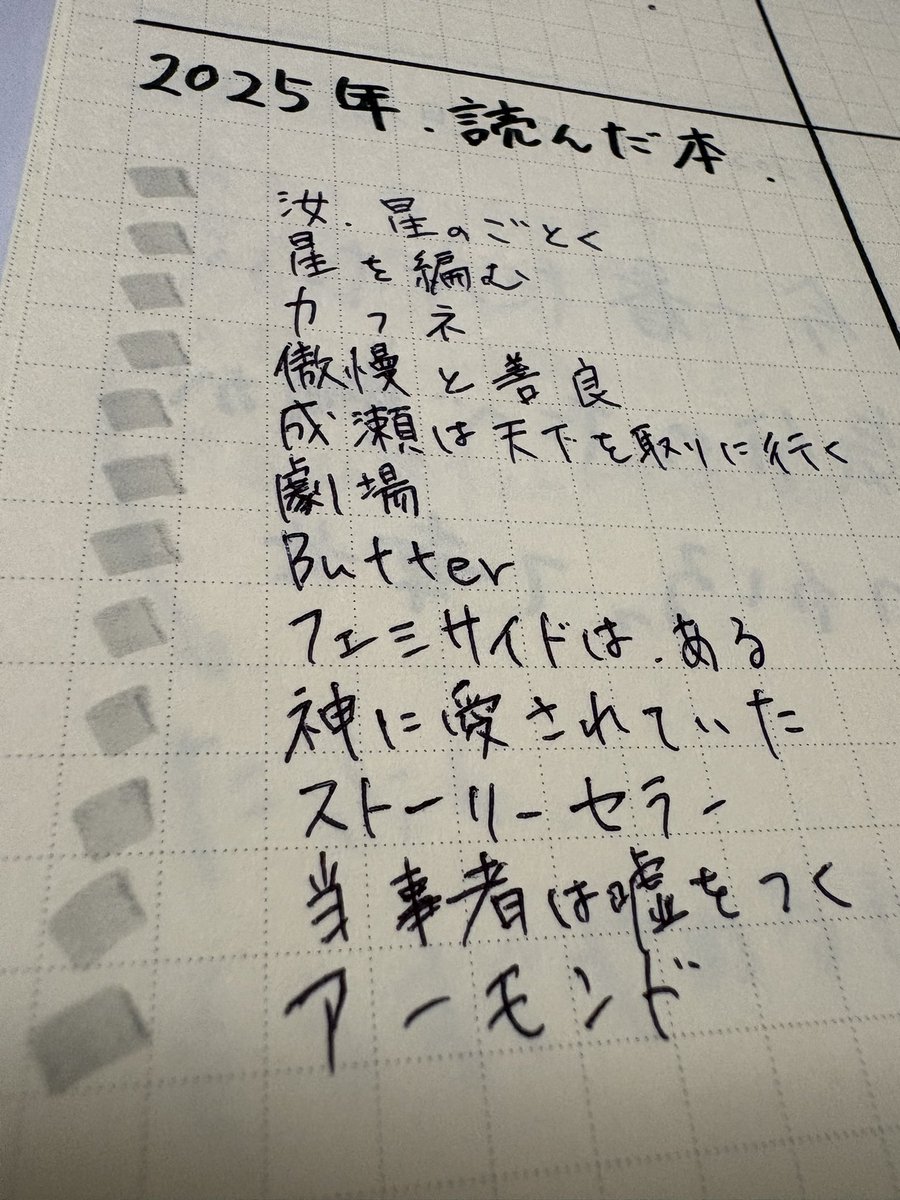 2025年.読んだ本.
汝.星のごとく
星を編む
カフネ
傲慢と善良
成瀬は天下を取りに行く
劇場
Butter
フェミサイドは.ある
神に愛されていた
ストーリーセラー
当事者は嘘をつく
アーモンド